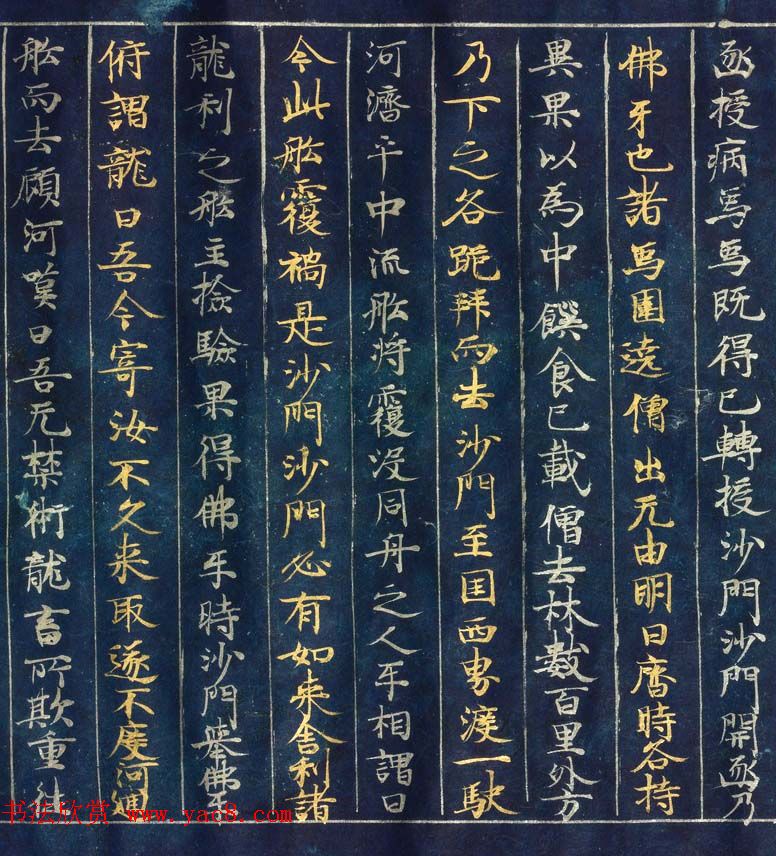 凾授病象象既得已轉授沙門沙門開凾乃
佛牙也諸象圍遶僧出无由明日齋時各持
異果以為中饌食已載僧去林數百里外方
乃下之各跪拜而去沙門至国西界渡一駛
河濟乎中流舩將覆沒同舟之人互相謂曰
今此舩覆禍是沙門沙門必有如来舍利諸
龍利之舩主撿驗果得佛牙時沙門舉佛牙
俯謂龍曰吾今寄汝不久来取遂不度河迴
舩而去顧河嘆曰吾无禁術龍畜所欺重
书法欣赏 www.yac8.com